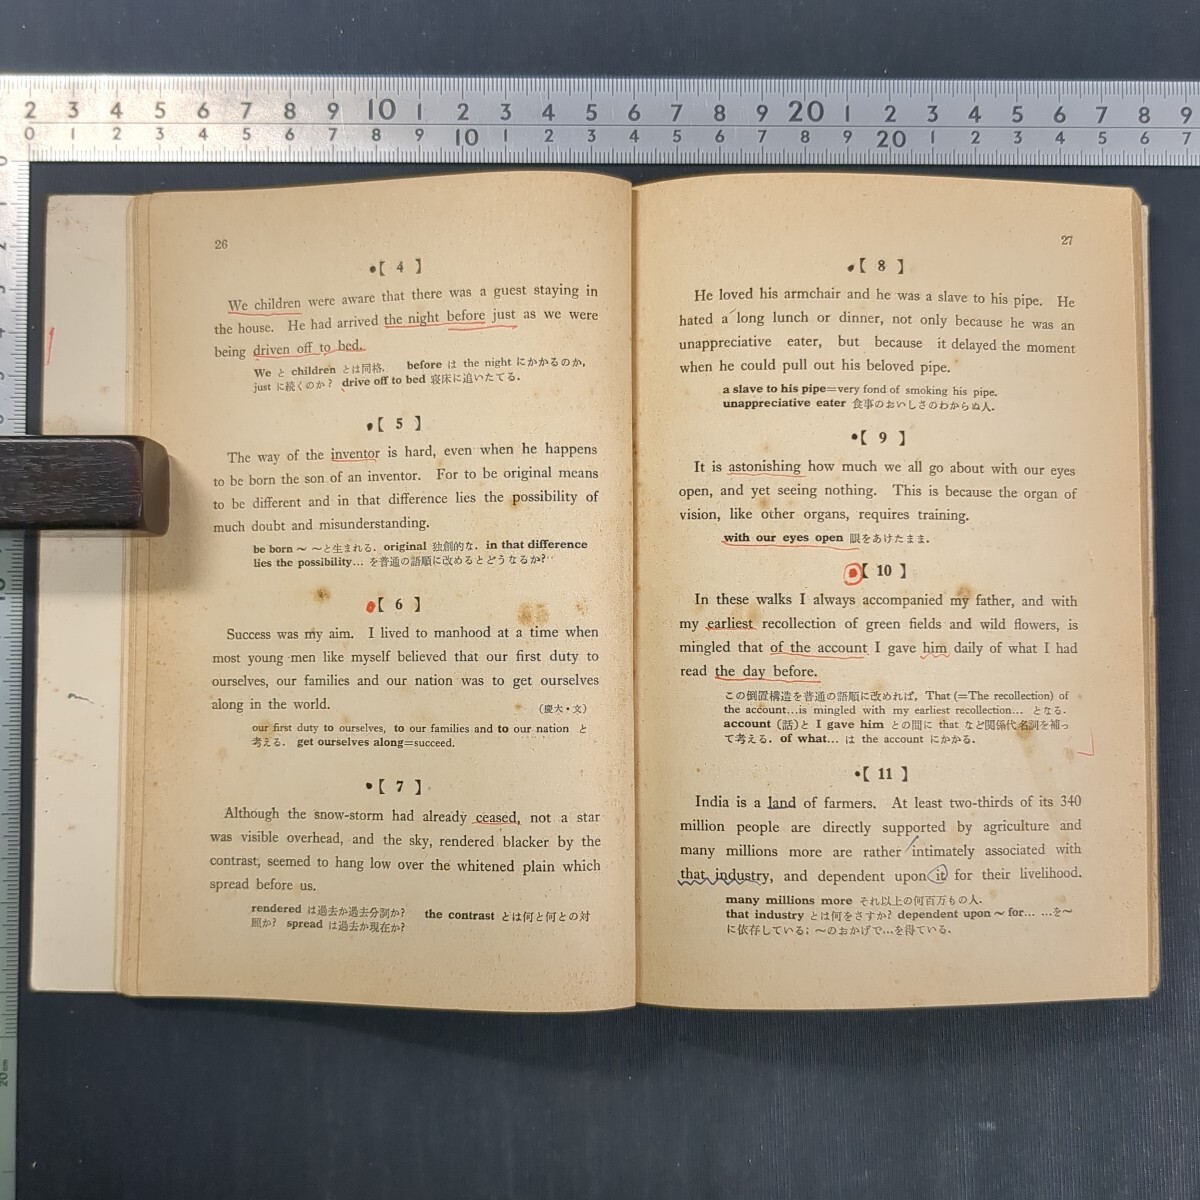 2 3 4 5 6 7 8 9 10 1 2 3 4 5 6 7 8 9 20 1 2 3 4 5 6 7 8 9
0 1 2 3 4 5 6 7 8 9 10 1 2 3 4 5 6 7 8 9 20 1 2 3 4 5 6 7
26
【 4 】
We children were aware that there was a guest staying in
the house. He had arrived the night before just as we were
being driven off to bed.
We と children とは同格. before は the night にかかるのか,
just に続くのか? drive off to bed 寝床に追いたてる.
【 5 】
The way of the inventor is hard, even when he happens
to be born the son of an inventor. For to be original means
to be different and in that difference lies the possibility of
much doubt and misunderstanding.
be born ～ ～と生まれる. original 独創的な. in that difference
lies the possibility... を普通の語順に改めるとどうなるか?
【 6 】
Success was my aim. I lived to manhood at a time when
most young men like myself believed that our first duty to
ourselves, our families and our nation was to get ourselves
along in the world. (慶大・文)
our first duty to ourselves, to our families and to our nation と
考える. get ourselves along=succeed.
【 7 】
Although the snow-storm had already ceased, not a star
was visible overhead, and the sky, rendered blacker by the
contrast, seemed to hang low over the whitened plain which
spread before us.
rendered は過去か過去分詞か? the contrast とは何と何との対
照か? spread は過去か現在か?
27
【 8 】
He loved his armchair and he was a slave to his pipe. He
hated a long lunch or dinner, not only because he was an
unappreciative eater, but because it delayed the moment
when he could pull out his beloved pipe.
a slave to his pipe=very fond of smoking his pipe.
unappreciative eater 食事のおいしさのわからぬ人.
【 9 】
It is astonishing how much we all go about with our eyes
open, and yet seeing nothing. This is because the organ of
vision, like other organs, requires training.
with our eyes open 眼をあけたまま.
【 10 】
In these walks I always accompanied my father, and with
my earliest recollection of green fields and wild flowers, is
mingled that of the account I gave him daily of what I had
read the day before.
この倒置構造を普通の語順に改めれば, That (=The recollection) of
the account...is mingled with my earliest recollection... となる.
account (話)と I gave him との間に that など関係代名詞を補っ
て考える. of what... は the account にかかる.
【 11 】
India is a land of farmers. At least two-thirds of its 340
million people are directly supported by agriculture and
many millions more are rather intimately associated with
that industry, and dependent upon it for their livelihood.
many millions more それ以上の何百万もの人.
that industry とは何をさすか? dependent upon ～ for... ...を～
に依存している; ～のおかげで...を得ている.